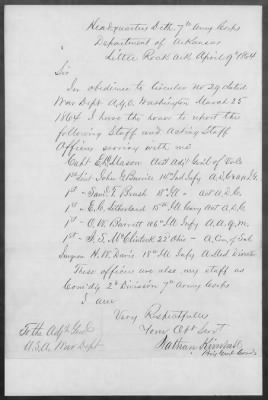 Headquarters Detch. 7th Army Corps
Department of Arkansas
Little Rock Ark April 9th 1864
Sir
In obedience to Circular No 29 dated
War Dept A.G.O. Washington March 25
1864 I have the honor to report the
following Staff and Acting Staff
Officers serving with me
Capt E. D. Mason Asst Adjt Genl of Vols
1st Lieut John G. 1st Ind Infy
1st - Saml. E. Brush 18th Ill - Act A.D.C.
1st - E. C. Sutherland 15th Ill Cavy Act A.D.C.
1st - O. W. Barrett 106th Ill Infy A.A.Q.M.
1st - McClintock 22d Ohio - A. Com of Sub
Surgeon H. W. Davis 18th Ill Infy A Med Director
These officers are also my staff as
Comdg 2d Division 7th Army Corps
I am
Very Respectfully
Your Obt Servt
Nathan Kimball
Brig Genl Comdg
To the Adjt Genl
U.S.A. War Dept